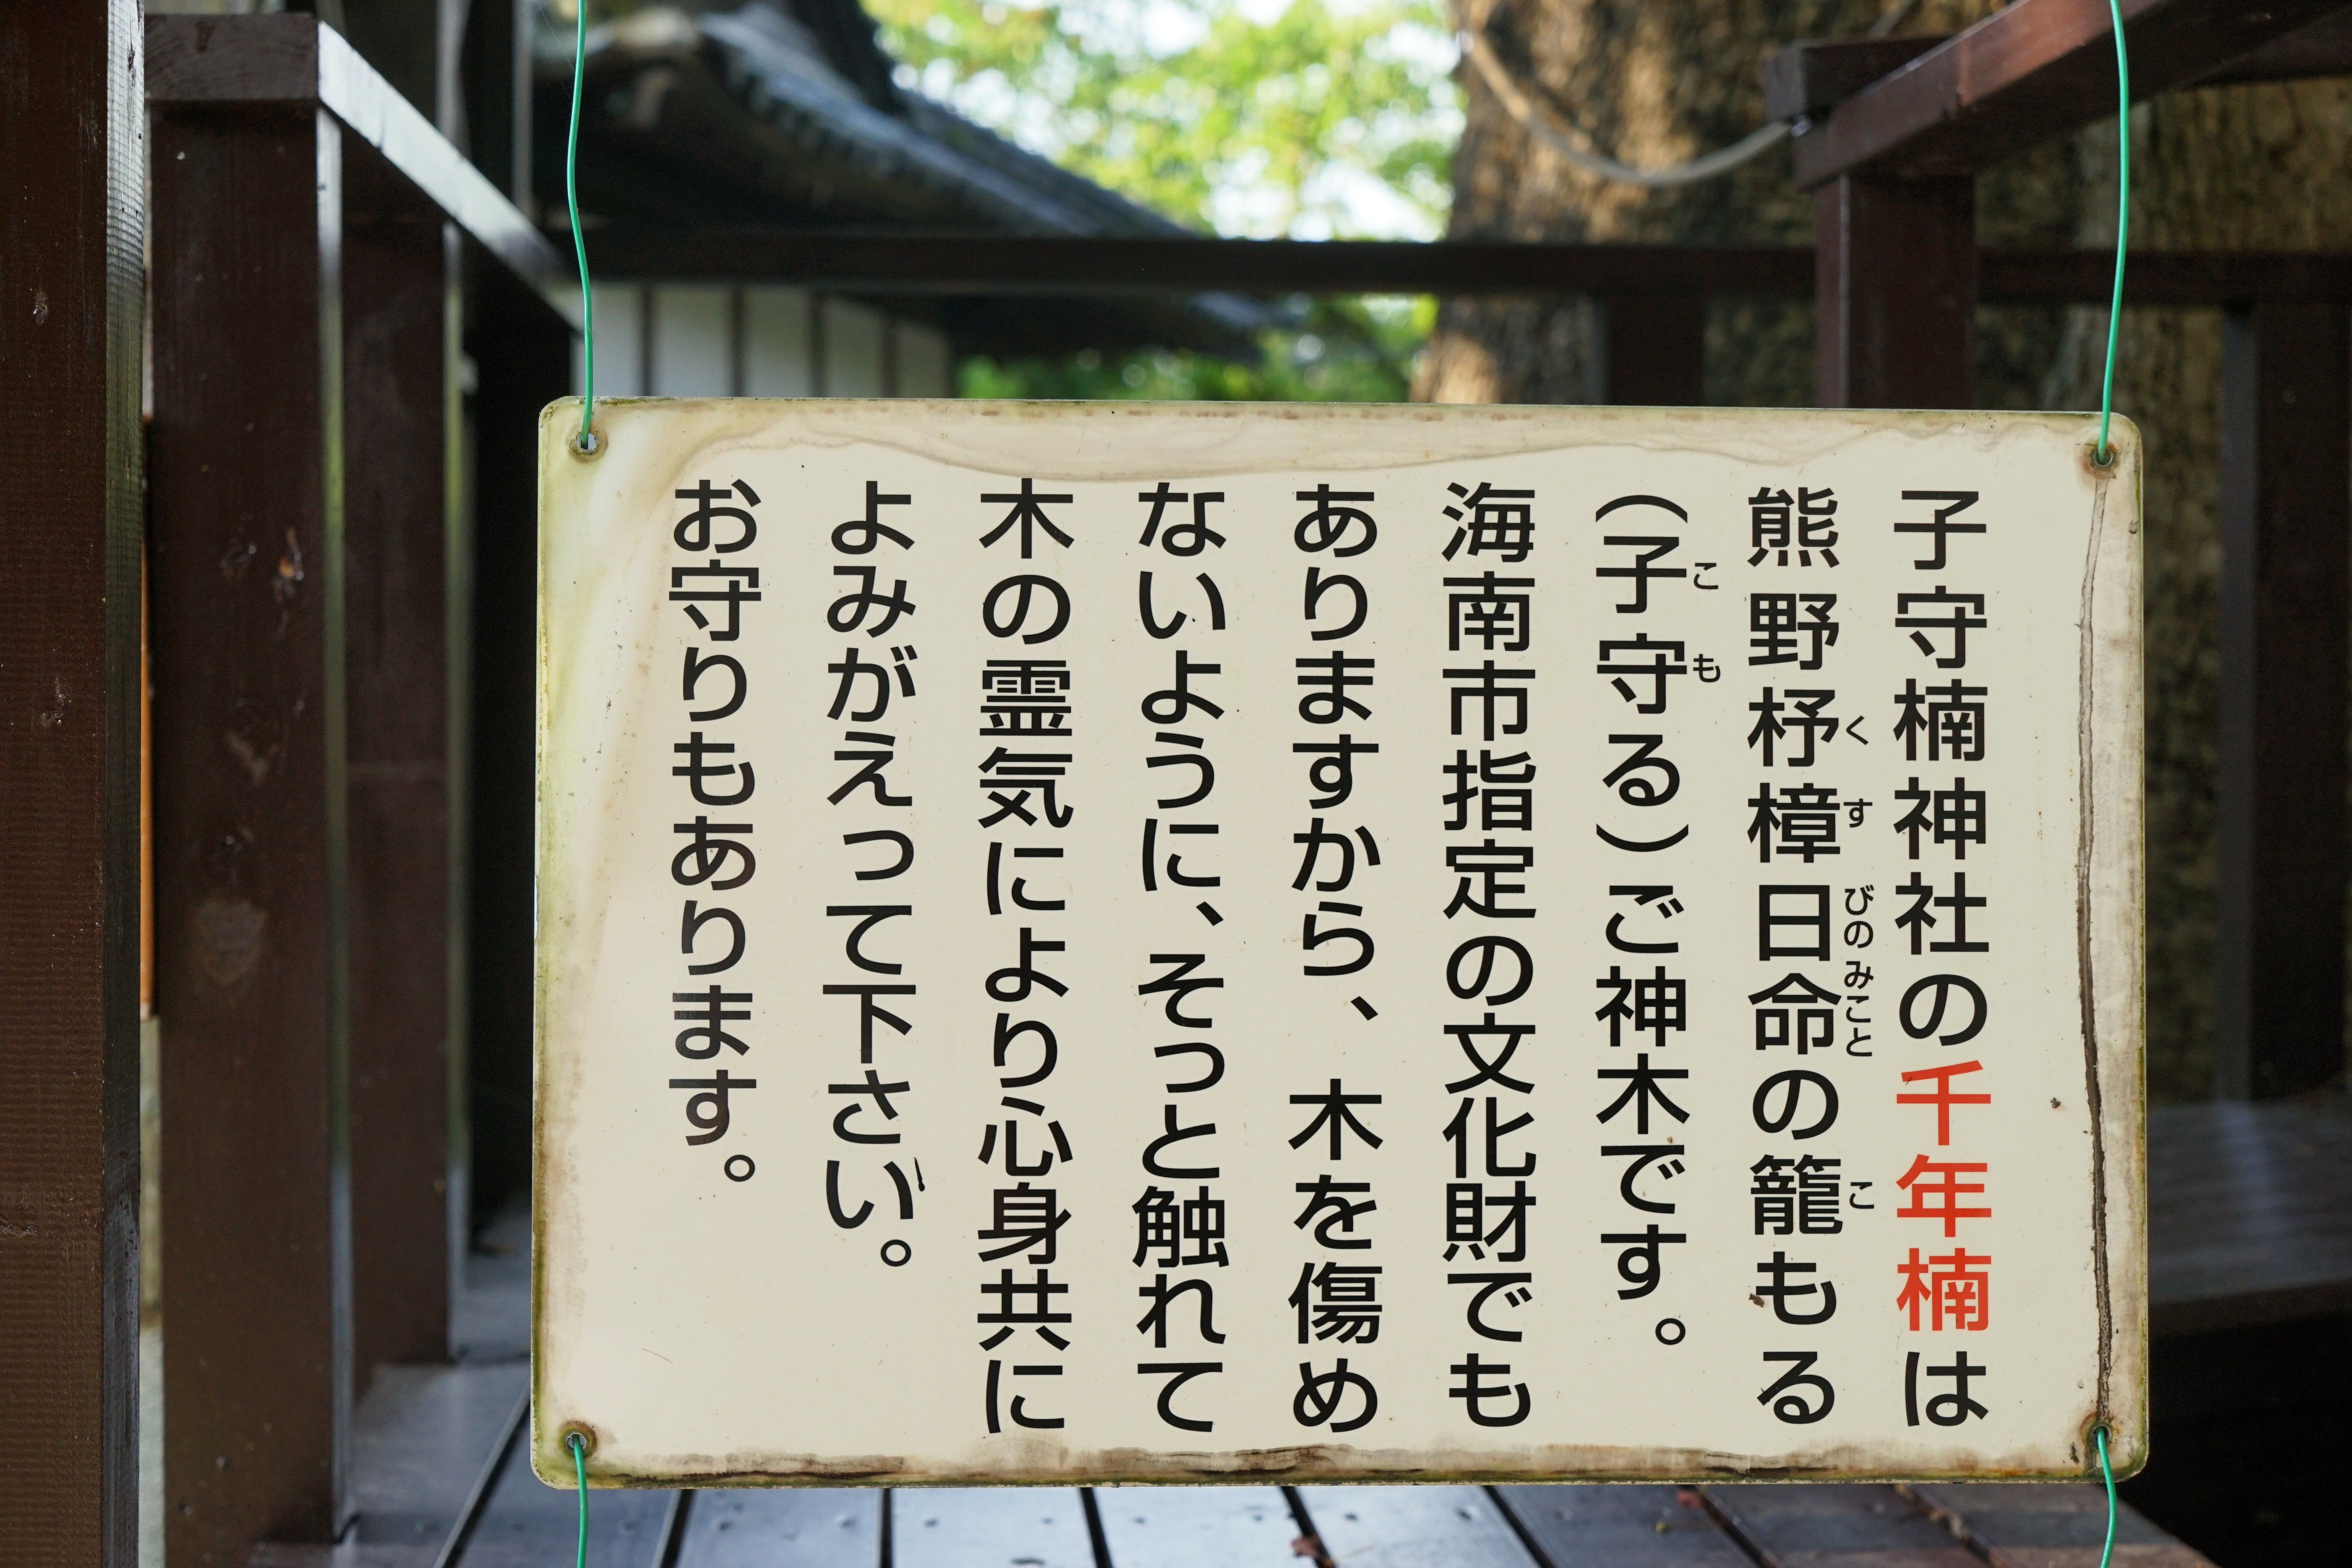 子守楠神社の千年楠は
熊野杼樟日命の籠もる
くすびのみこと
こ
（子守る）ご神木です。
こも
海南市指定の文化財でも
ありますから、木を傷め
ないように、そっと触れて
木の霊気により心身共に
よみがえって下さい。
お守りもあります。